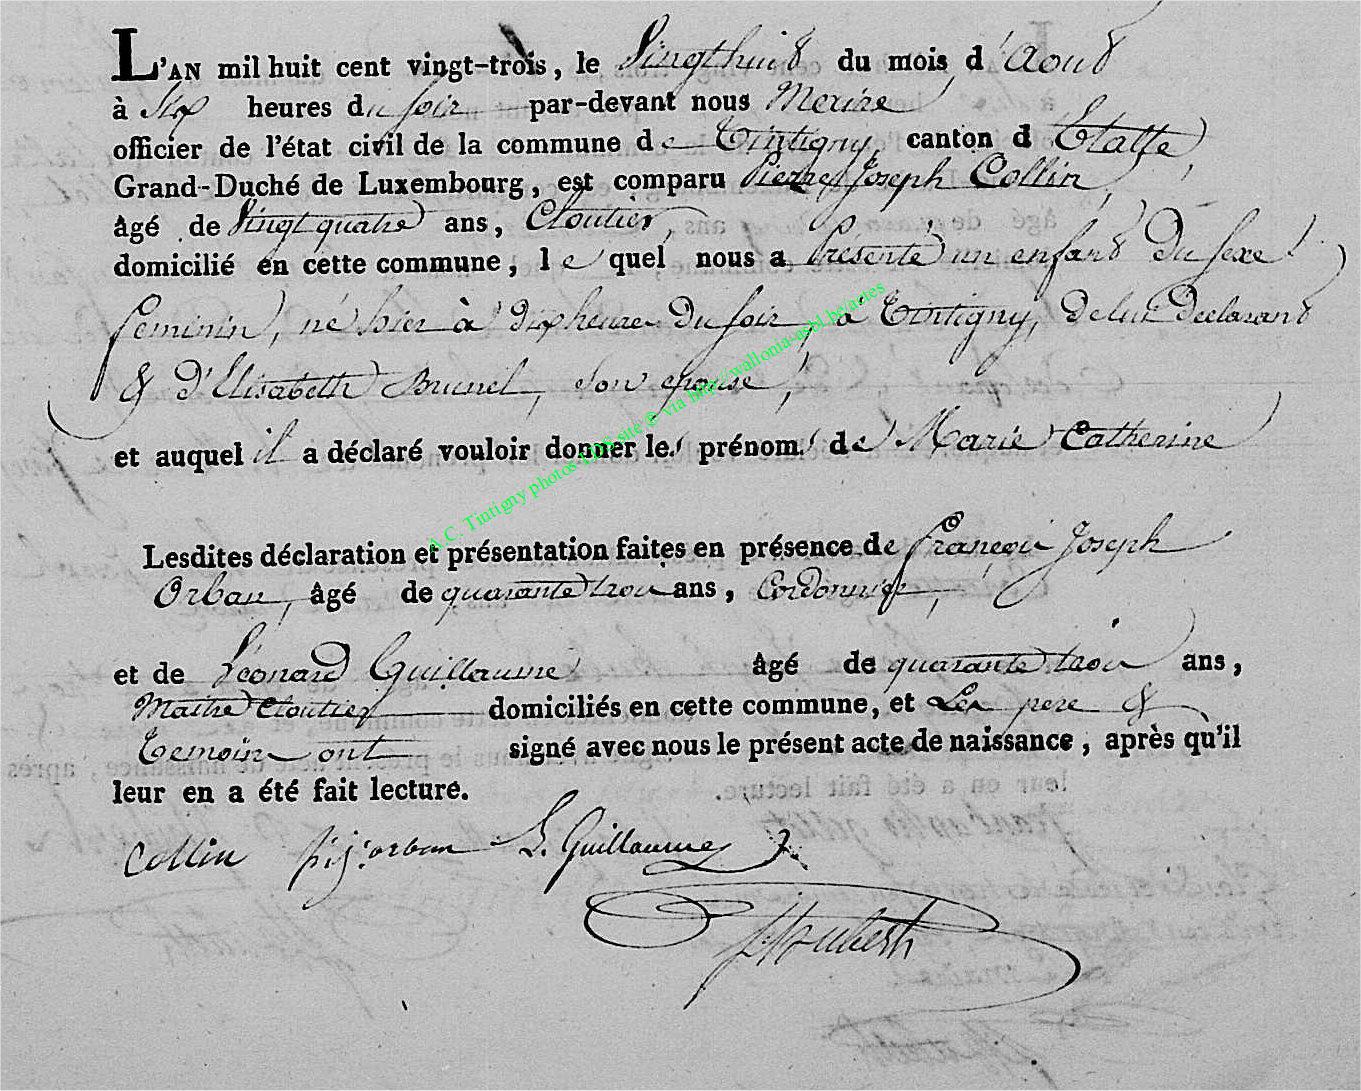 L'AN mil huit cent vingt-trois, le Vingt huit du mois d'Aout
à Six heures du soir par-devant nous Mexire
officier de l'état civil de la commune de Tintigny canton d Etalle
Grand-Duché de Luxembourg, est comparu Pierre Joseph Collin,
âgé de Vingt quatre ans, Cloutier,
domicilié en cette commune, lequel nous a Présenté un enfant Du sexe
feminin, né hier à dix heure Du soir, à Tintigny, de lui Declarant
& d'Elisabeth Brunel, son epouse,
et auquel il a déclaré vouloir donner les prénoms de Marie Catherine
A.C. Tintigny photos LDS site © via http://wallonia-asbl.be/actes
Lesdites déclaration et présentation faites en présence de François Joseph
Orban, âgé de quarante trois ans, Cordonnier,
et de Léonard Guillaume âgé de quarante trois ans,
Maitre Cloutier domiciliés en cette commune, et Les pere &
Temoins ont signé avec nous le présent acte de naissance, après qu'il
leur en a été fait lecture.
Collin f:j:orban L. Guillaume
Hubert